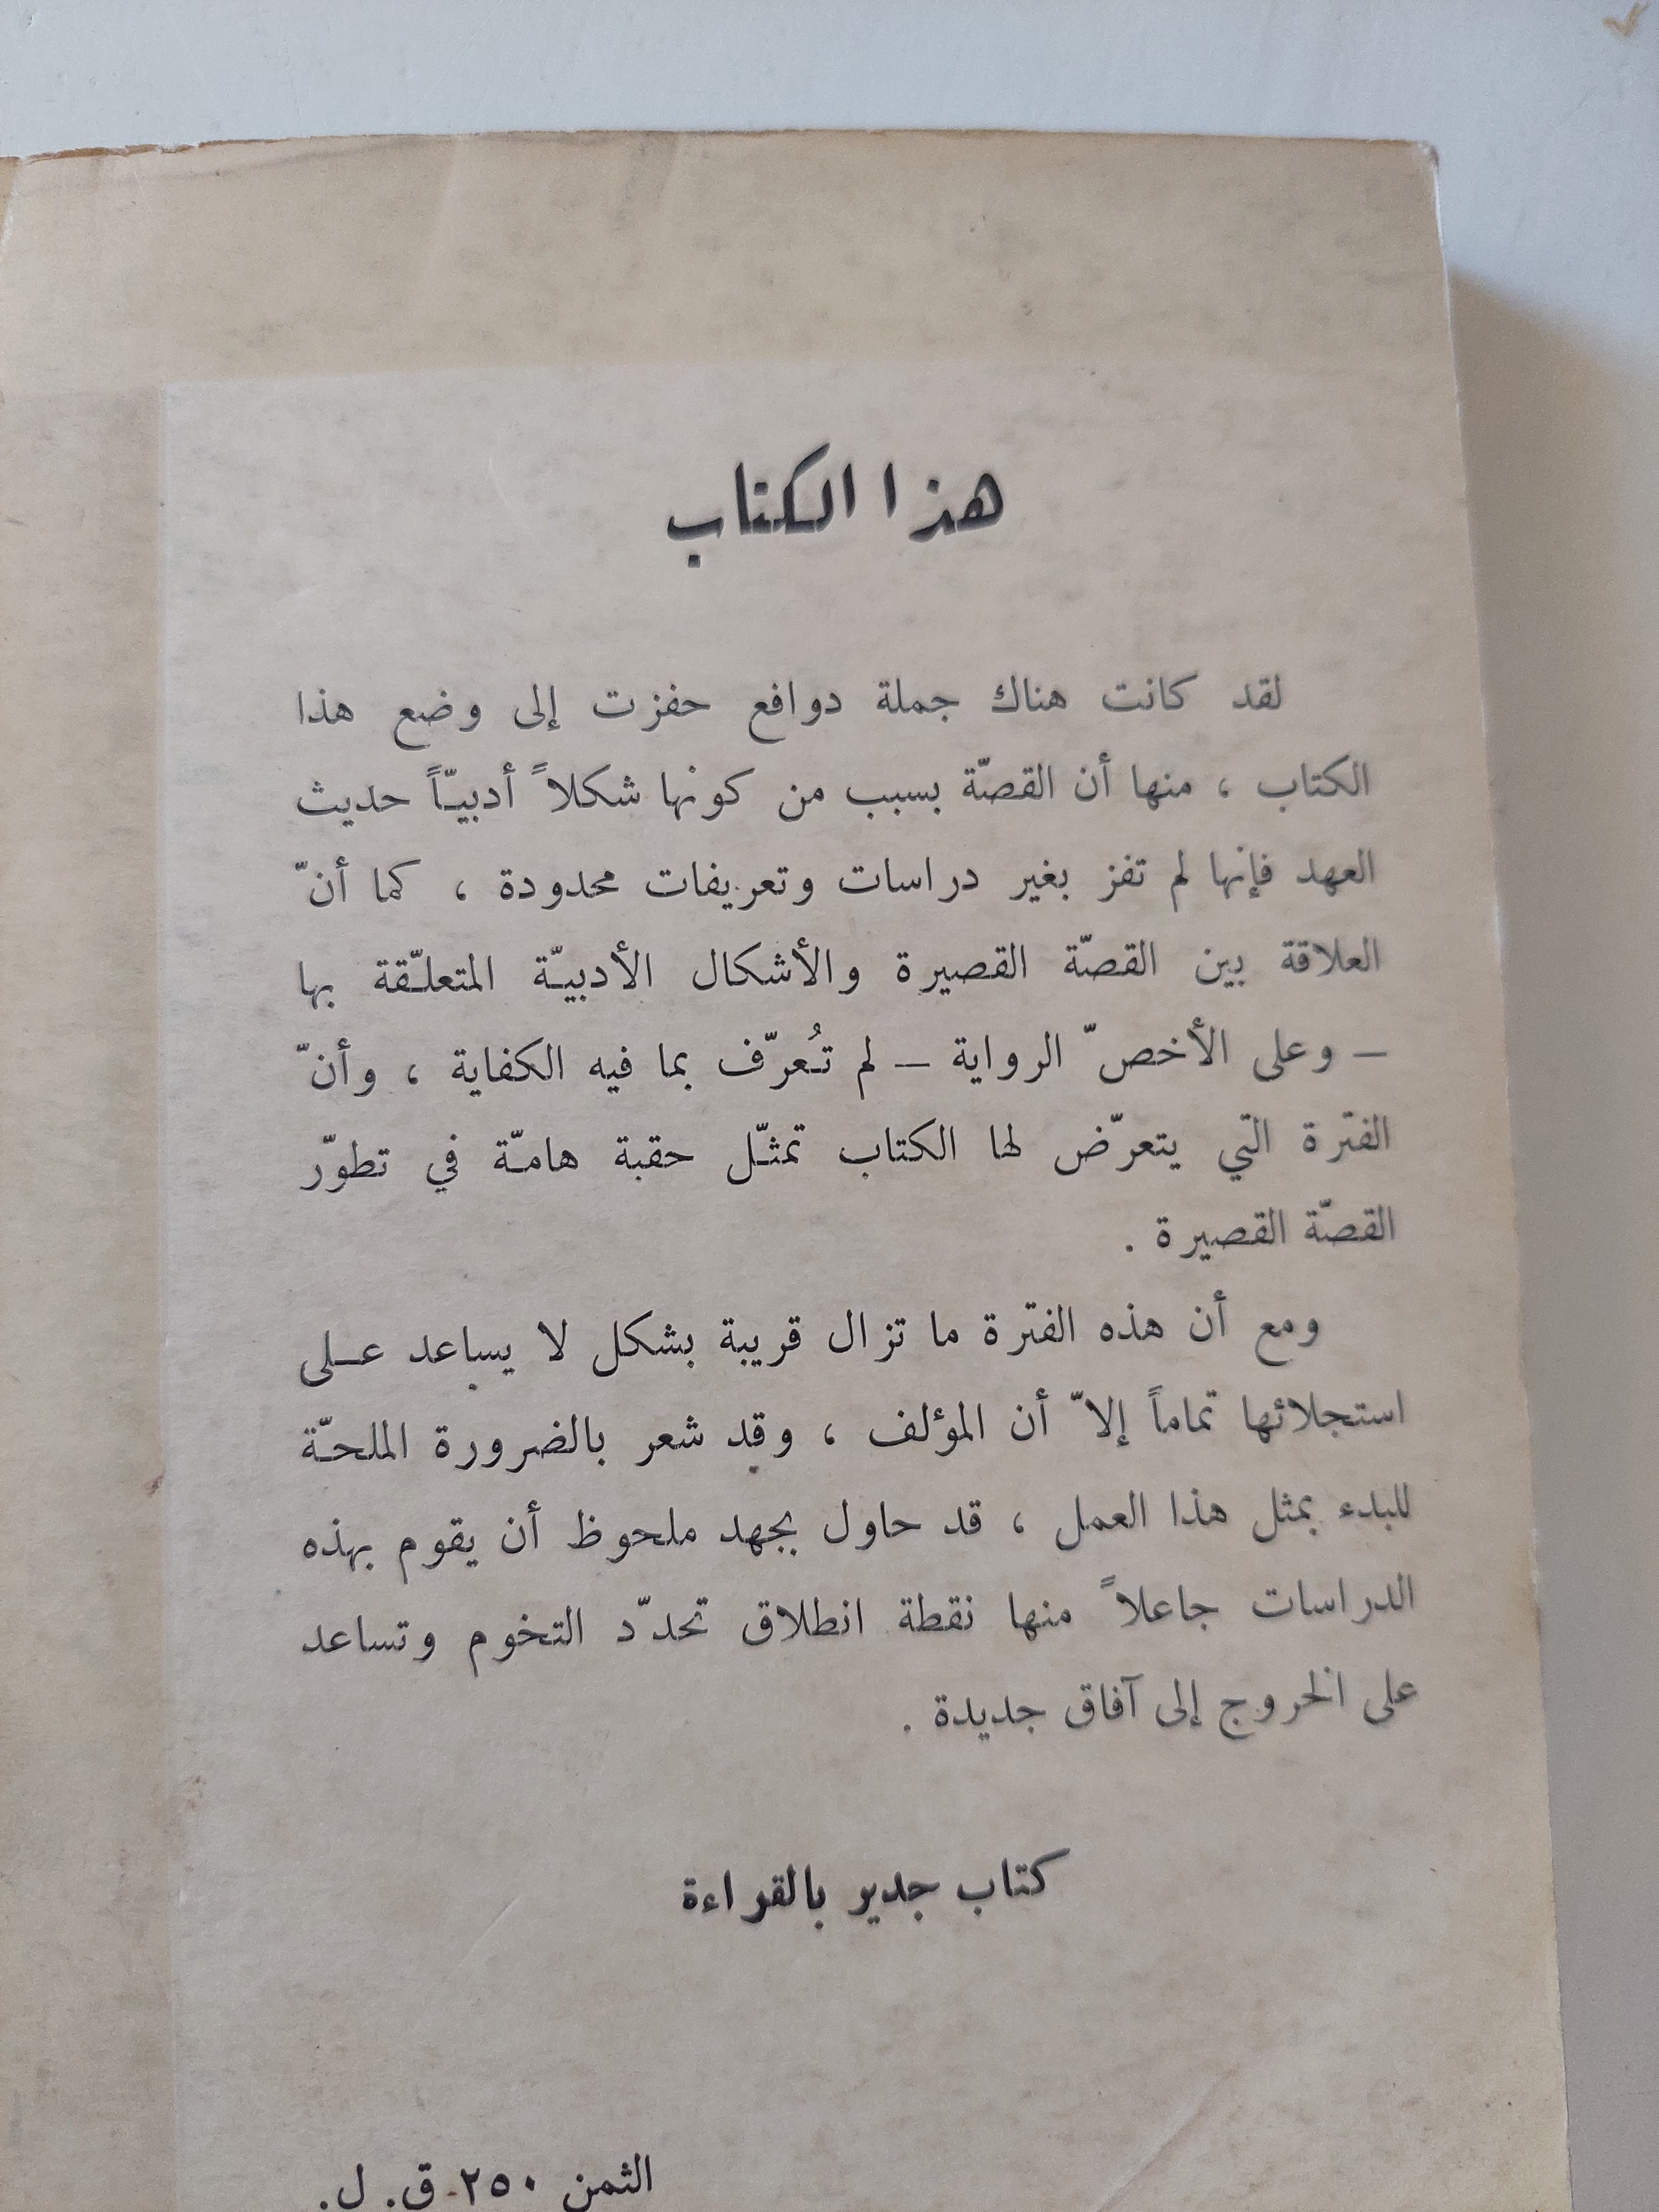 هذا الكتاب
لقد كانت هناك جملة دوافع حفزت إلى وضع هذا
الكتاب ، منها أن القصّة بسبب من كونها شكلاً أدبيّاً حديث
العهد فإنها لم تفز بغير دراسات وتعريفات محدودة ، كما أنّ
العلاقة بين القصّة القصيرة والأشكال الأدبيّة المتعلّقة بها
– وعلى الأخصّ الرواية – لم تُعرّف بما فيه الكفاية ، وأنّ
الفترة التي يتعرّض لها الكتاب تمثّل حقبة هامّة في تطوّر
القصّة القصيرة .
ومع أن هذه الفترة ما تزال قريبة بشكل لا يساعد عـلى
استجلائها تماماً إلاّ أن المؤلف ، وقد شعر بالضرورة الملحّة
للبدء بمثل هذا العمل ، قد حاول بجهد ملحوظ أن يقوم بهذه
الدراسات جاعلاً منها نقطة انطلاق تحدّد التخوم وتساعد
على الخروج إلى آفاق جديدة .
كتاب جدير بالقراءة
الثمن ٢٥٠ ق. ل.